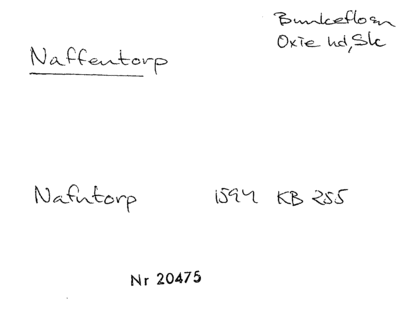 Bunkeflo sn
Oxie hd, Sk
Naffentorp
Nafntorp 1594 KB 255
Nr 20475